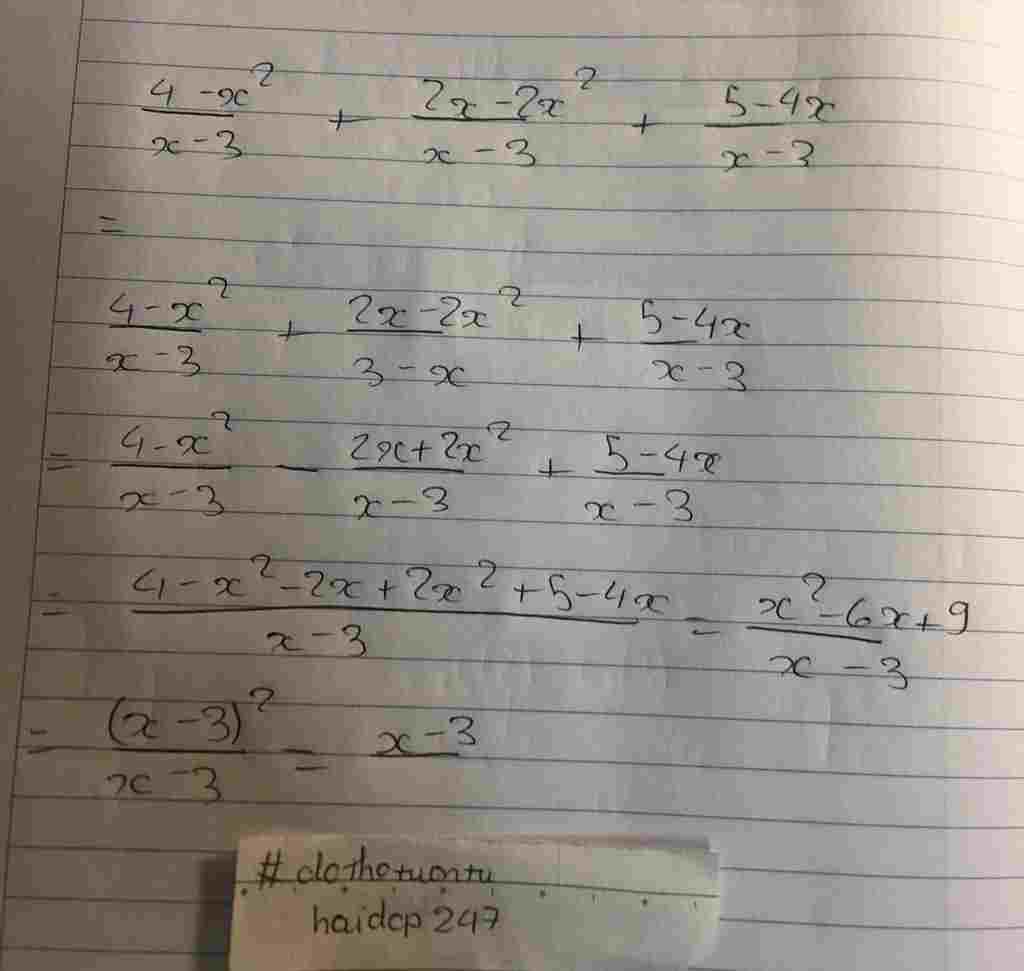 (4-x²)/(x-3) + (2x-2x²)/(x-3) + (5-4x)/(x-3)
=
(4-x²)/(x-3) + (2x-2x²)/(3-x) + (5-4x)/(x-3)
= (4-x²)/(x-3) - (2x+2x²)/(x-3) + (5-4x)/(x-3)
= (4-x²-2x+2x²+5-4x)/(x-3) = (x²-6x+9)/(x-3)
= (x-3)²/(x-3) = x-3
#clothotuontu
haidcp247